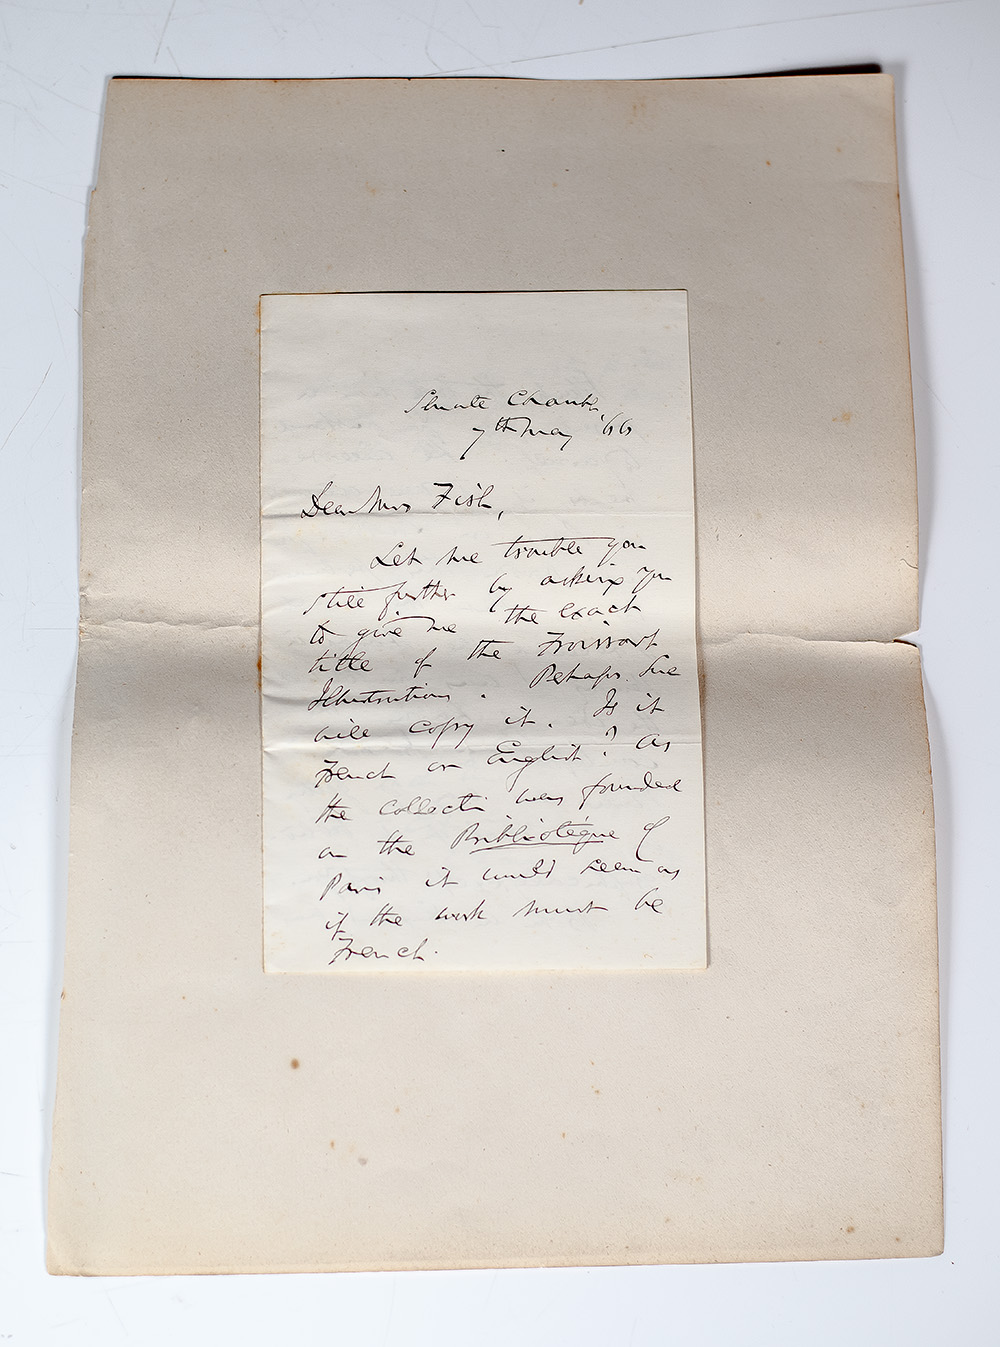 Senate Chamber
7th May '66
Dear Mrs Fish,
Let me trouble you
still further by asking you
to give me the exact
title of the Froissart
Illustrations. Perhaps
will copy it. Is it
French or English? As
the collection was founded
on the Bibliotéque of
Paris it would seem as
if the work must be
French.